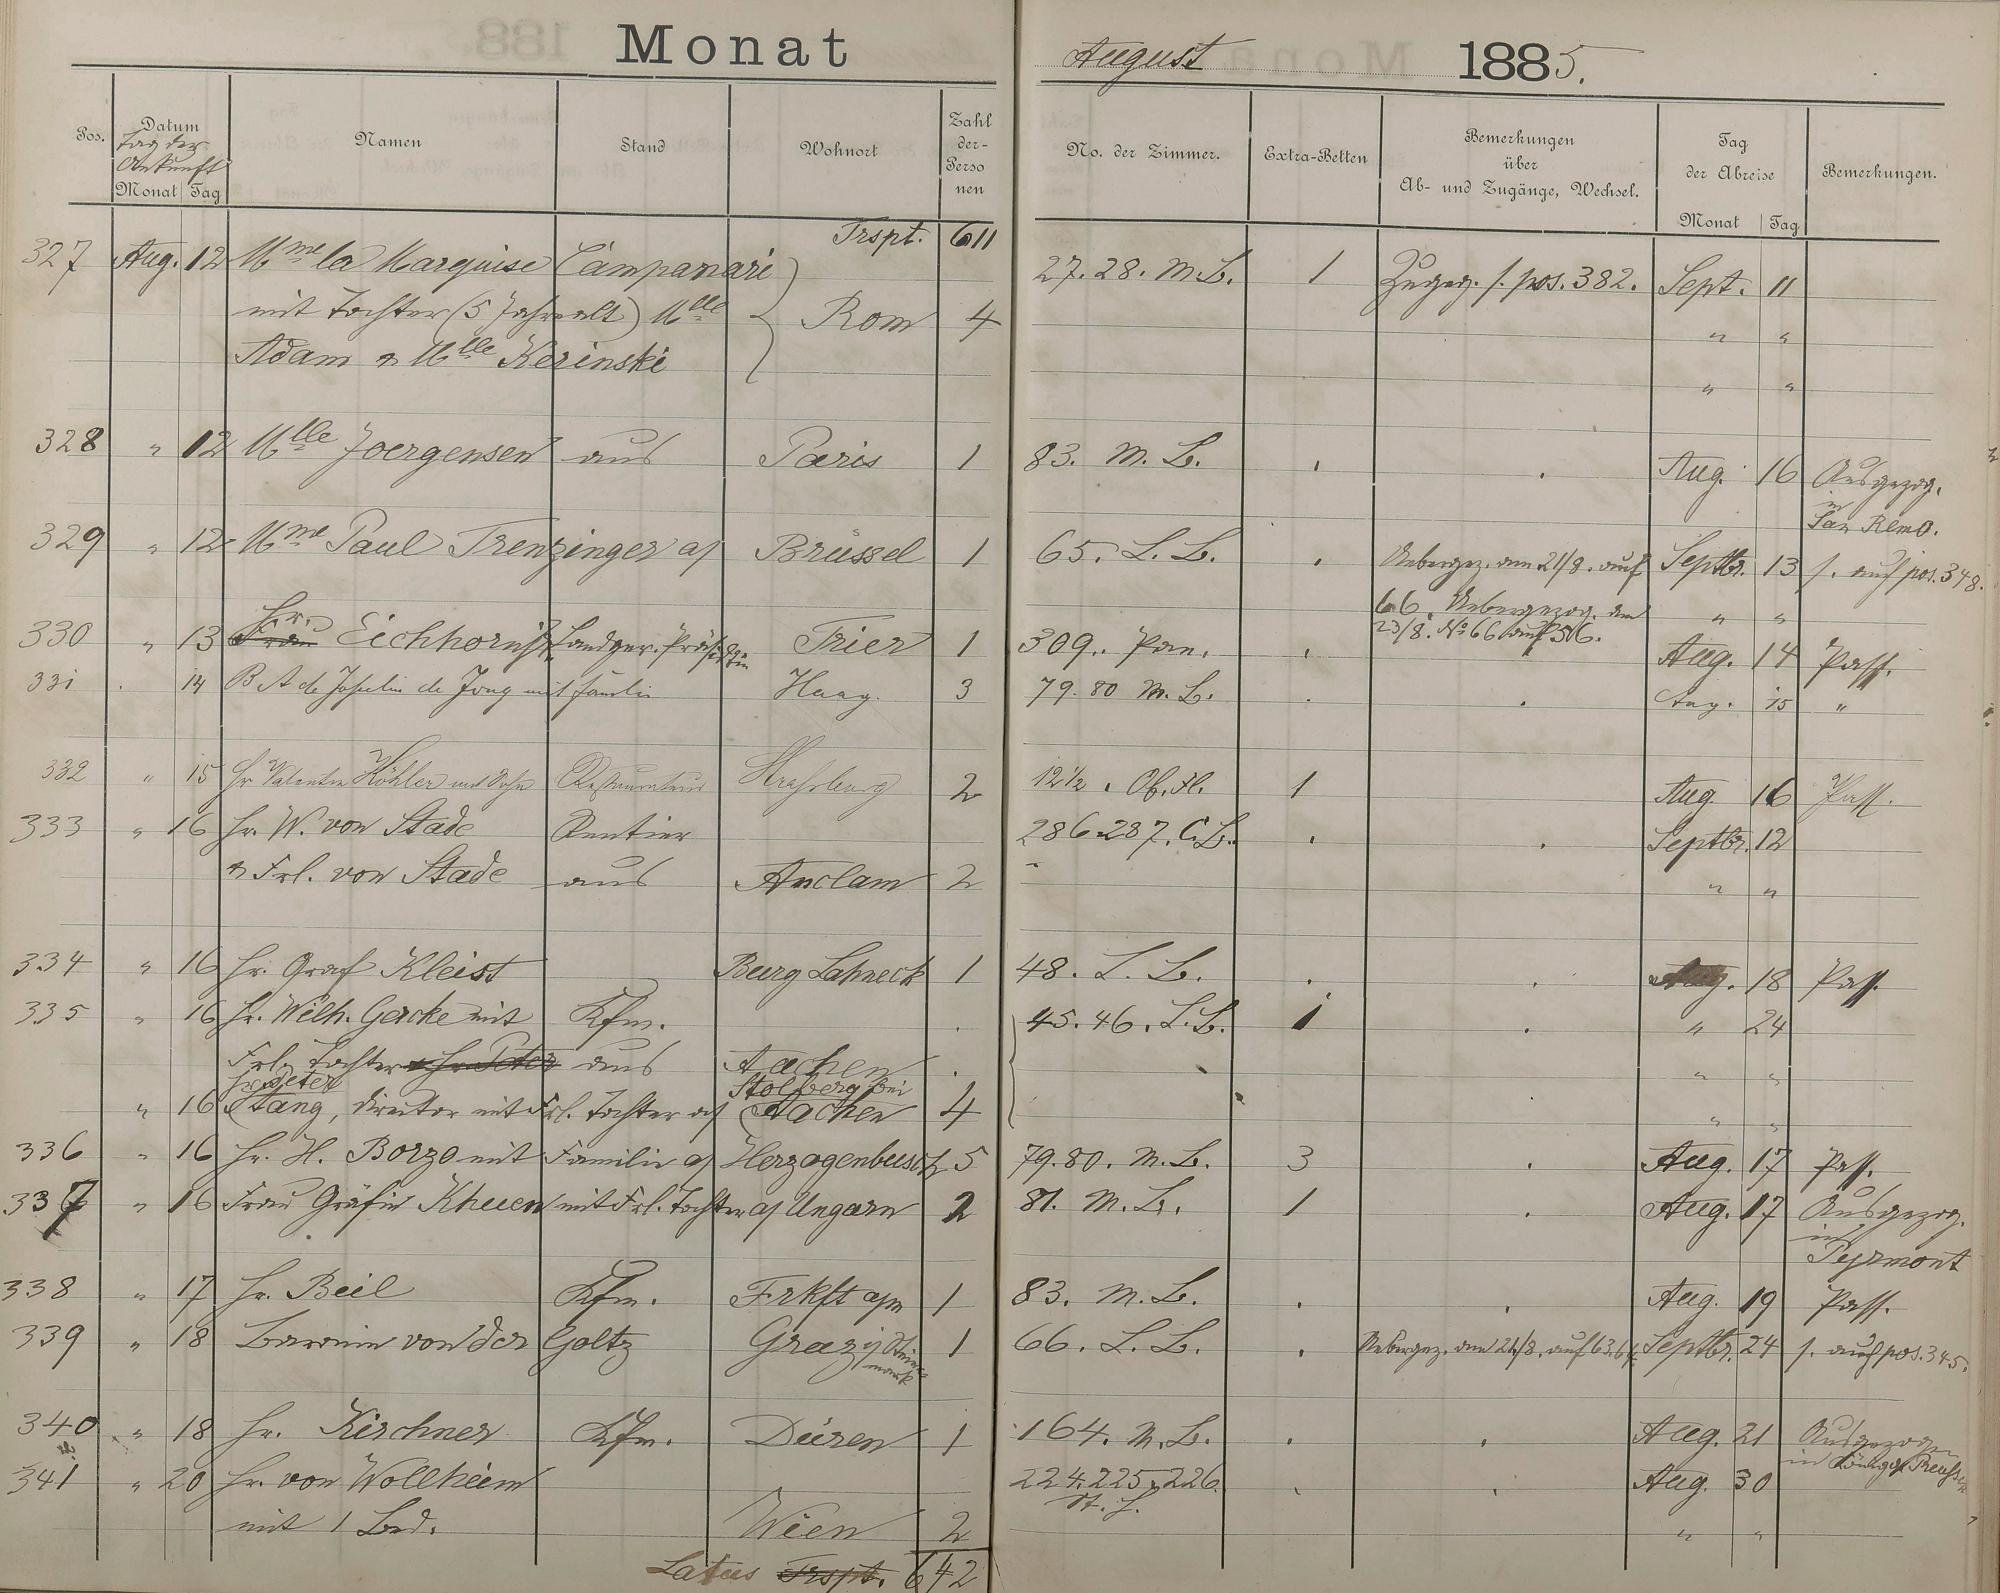 Monat August 1885.
Pos. Datum Namen Stand Wohnort Zahl der Perso nen No. der Zimmer. Extra-Betten Bemerkungen über Ab- und Zugänge, Wechsel. Tag der Abreise Bemerkungen.
Tag der Ankunft
Monat Tag Monat Tag
Trspt. 611
327 Aug. 12 Mme la Marquise Campanari 27. 28. M.B. 1 Zugeg. s. pos. 382. Sept. 11
mit Tochter (5 Jahre alt) Mlle Rom 4 " "
Adam & Mlle Kerinski " "
328 " 12 Mlle Joergensen aus Paris 1 83. M. B. Aug. 16 Ausgezog.
in San Remo.
329 " 12 Mme Paul Trenzinger a/ Brüssel 1 65. L. B. Uebergez. am 21/8. auf Septbr. 13 s. auf pos. 348.
66. Uebergezog. am " "
23/8. No 66 auf 56.
330 " 13 Hr. Frau Eichhorn Landger. Präsidtin Trier 1 309. Pav. Aug. 14 Pass.
331 . 14 B A de Josselin de Jong mit Familie Haag. 3 79. 80 M. B. Aug. 15 "
332 " 15 Hr Valentin Köhler und Sohn Restaurateur Strassburg 2 12 1/2. Ob. Fl. 1 Aug. 16 Pass.
333 " 16 Hr. W. von Stade Rentier 286-287. C.B. Septbr. 12
& Frl. von Stade aus Anclam 2 " "
334 " 16 Hr. Graf Kleist Burg Lahneck 1 48. L. B. Aug. 18 Pass.
335 " 16 Hr. Wilh. Gercke mit Kfm. 45. 46. L.B. 1 " 24
Frl. Tochter & Hr. Peter aus Aachen " "
Hr. Peter Stolberg bei
" 16 Stang, Director mit Frl. Tochter a/ Aachen 4 " "
336 " 16 Hr. H. Borzo mit Familie a/ Herzogenbusch 5 79. 80. M. B. 3 Aug. 17 Pass.
337 " 16 Frau Gräfin Khuen mit Frl. Tochter a/ Ungarn 2 81. M. B. 1 Aug. 17 Ausgezog.
in Pyrmont
338 " 17 Hr. Beil Kfm. Frkft a/m 1 83. M. B. Aug. 19 Pass.
339 " 18 Baronin von der Goltz Graz i/ Steiermark 1 66. L. B. Uebergez. am 21/8. auf 63.64. Septbr. 24 s. auf pos. 345.
340 " 18 Hr. Kirchner Kfm. Düren 1 164. M. B. Aug. 21 Ausgezogen
in König v Preussen
341 " 20 Hr. von Wollheim 224. 225. 226. Aug. 30
St. L.
mit 1 Bed. Wien 2 " "
Latus Trspt. 642